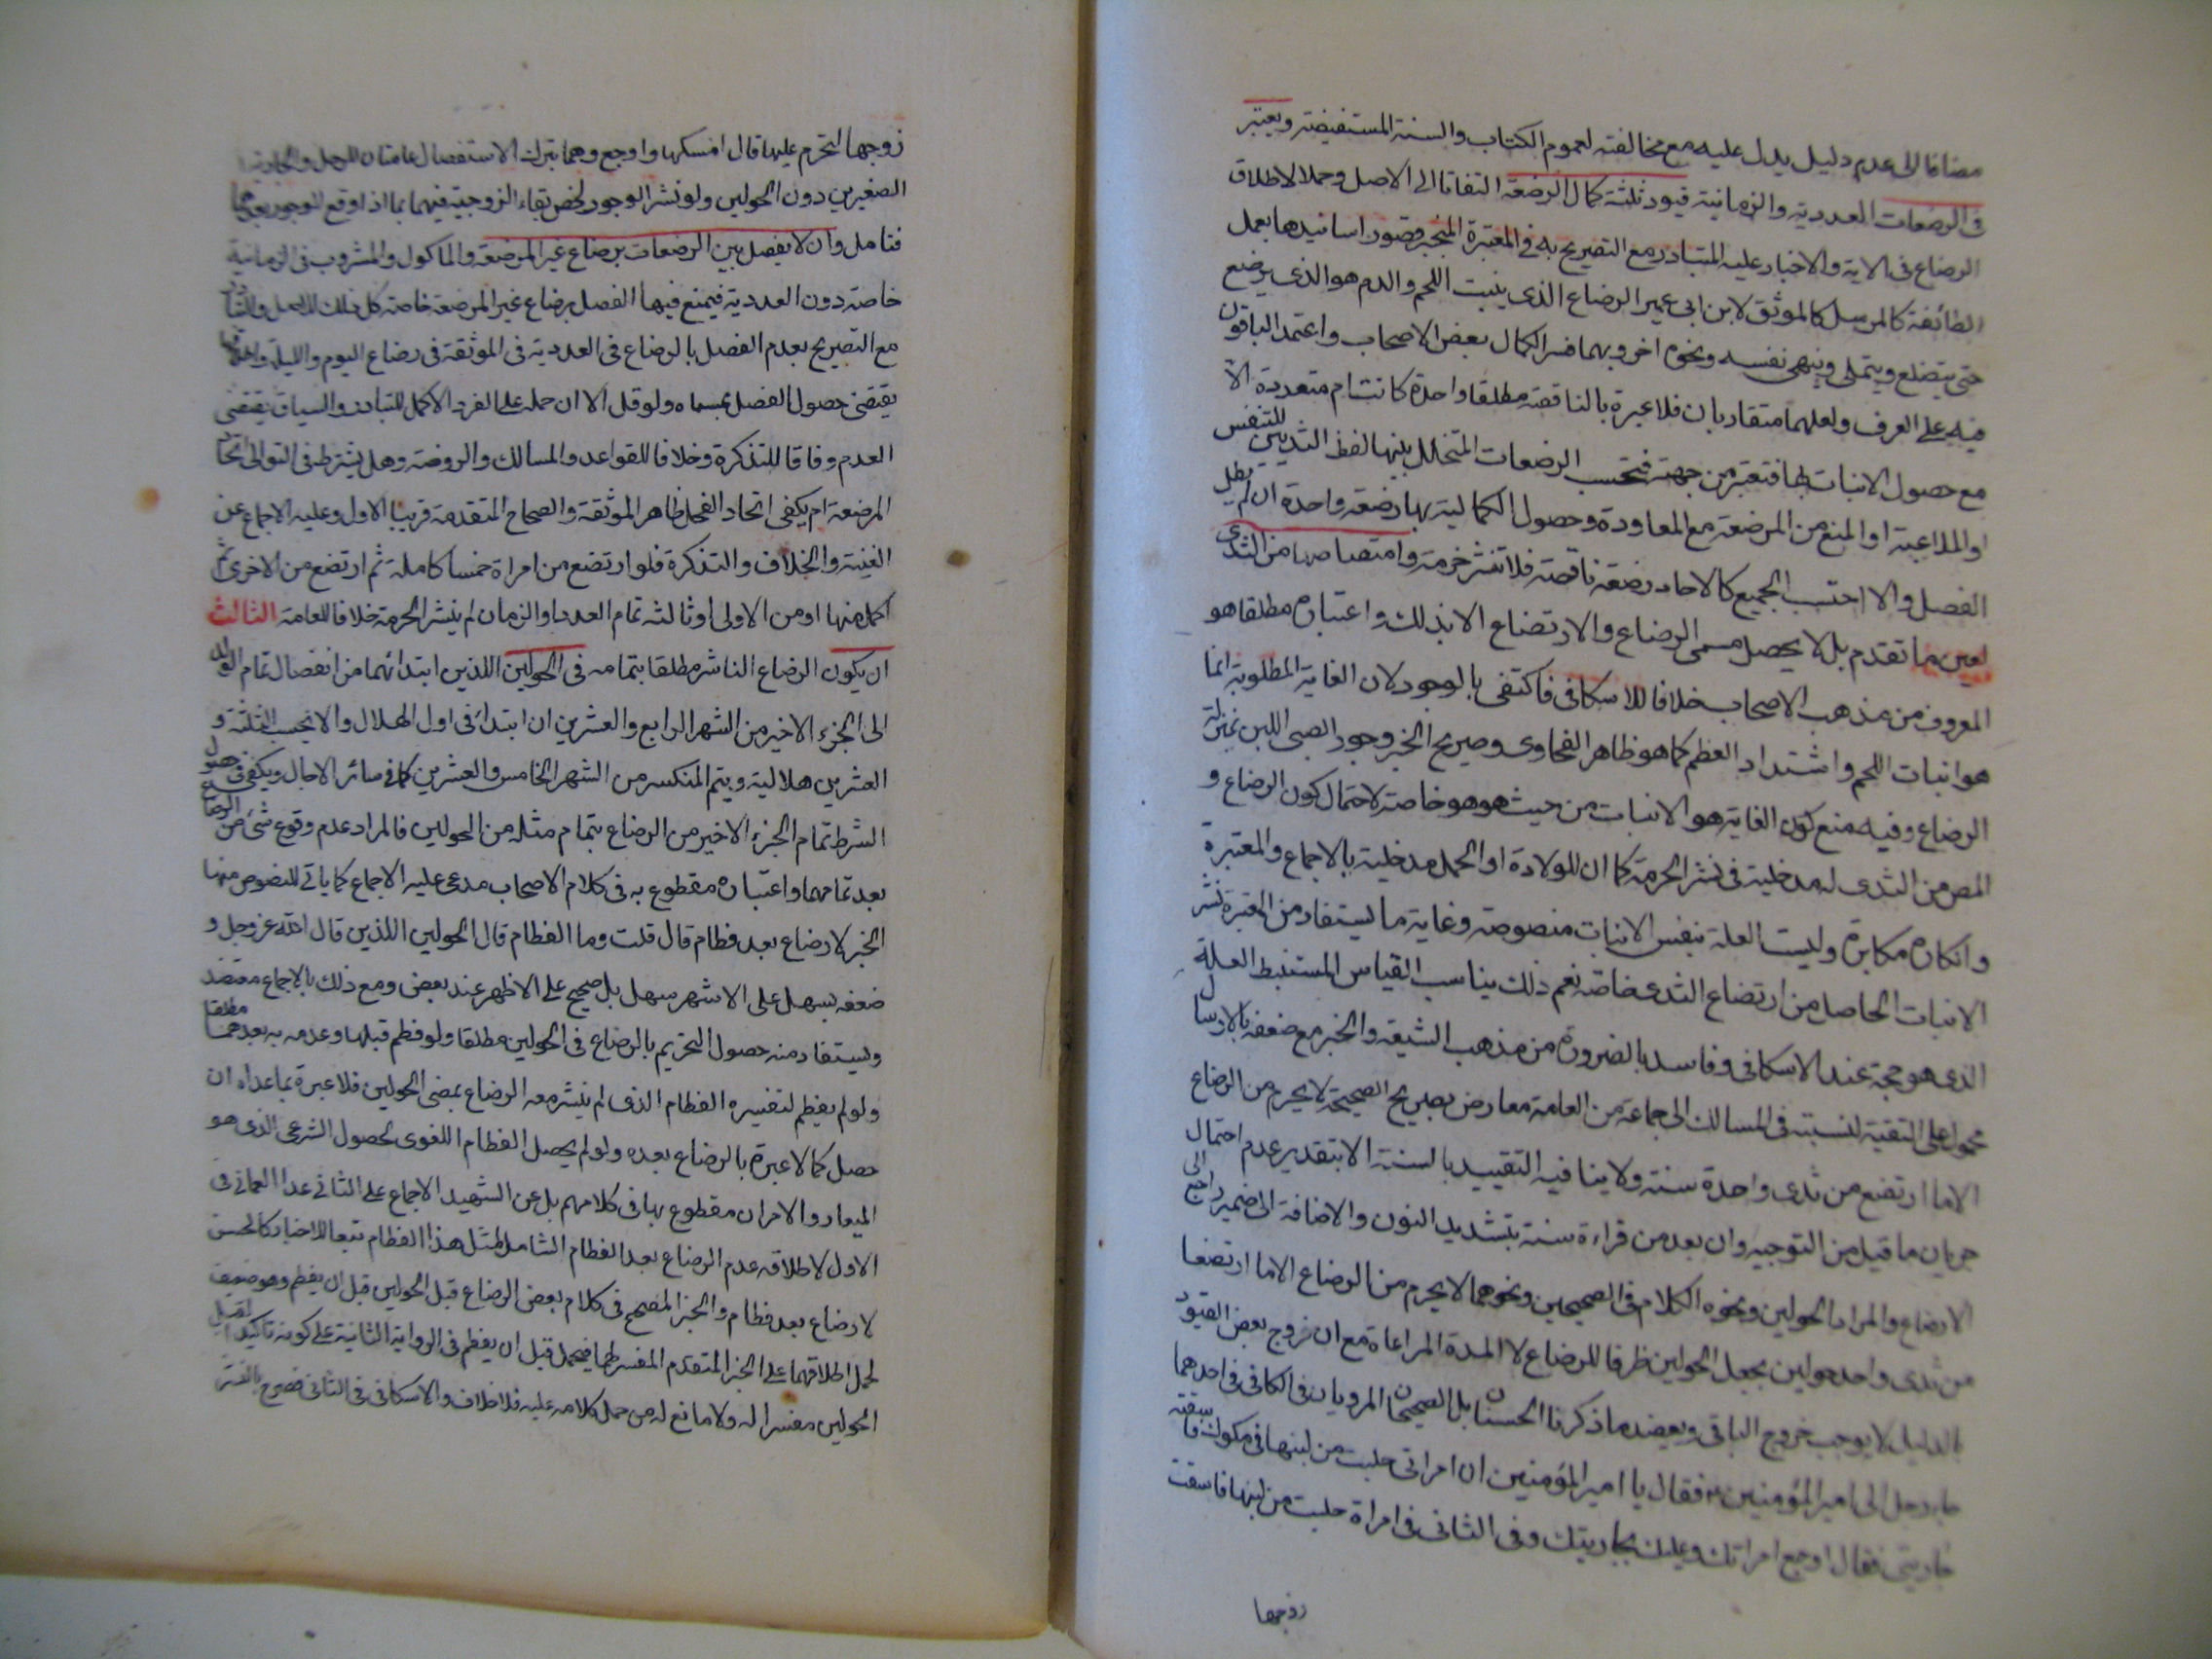 مضافا الى عدم دليل يدل عليه مع مخالفته لعموم الكتاب والسنة المستفيضة ويعتبر
فى الرضعات العددية والزمانية قيود ثلثة كمال الرضعة التفاتا الى الاصل وحملا لاطلاق
الرضاع فى الاية والاخبار عليه المتبادر مع التصريح به فى المعتبرة المنجبر قصور اسانيدها بعمل
الطائفة كالمرسل كالموثق لابن ابى عمير الرضاع الذى ينبت اللحم والدم هو الذى يرضع
حتى يتضلع ويتملى وينتهى نفسه ونحوه اخر وبهما فسر الكمال بعض الاصحاب واعتمد الباقون
فيه على العرف ولعلهما متقاربان فلا عبرة بالناقصة مطلقا واحدة كانت ام متعددة الا
مع حصول الانبات بها فتعتبر من جهته فتحسب الرضعات المتخلل بينها لفظ الثديين للتنفس
او الملاعبة او المنع من المرضعة مع المعاودة وحصول الكمالية بها رضعة واحدة ان لم يطل
الفصل والا احتسب الجميع كالاحاد رضعة ناقصة فلا تنشر حرمة وامتصاصها من الثدى
لعين ما تقدم بل لا يحصل مسمى الرضاع والارتضاع الا بذلك واعتباره مطلقا هو
المعروف من مذهب الاصحاب خلافا للاسكافى فاكتفى بالوجور لان الغاية المطلوبة انما
هو انبات اللحم واشتداد العظم كما هو ظاهر الفحاوى وصريح الخبر وجور الصبى اللبن بمنزلة
الرضاع وفيه منع كون الغاية هو الانبات من حيث هو هو خاصة لاحتمال كون الرضاع و
المص من الثدى له مدخلية فى نشر الحرمة كما ان للولادة او الحمل مدخلية بالاجماع والمعتبرة
وانكاره مكابرة وليست العلة بنفس الانبات منصوصة وغاية ما يستفاد من المعتبرة نشر
الانبات الحاصل من ارتضاع الثدى خاصة نعم ذلك يناسب القياس المستنبط العلة
الذى هو حجة عند الاسكافى وفاسد بالضرورة من مذهب الشيعة والخبر مع ضعفه بالارسال
محمول على التقية لنسبته فى المسالك الى جماعة من العامة معارض بصريح الصحيحة لا يحرم من الرضاع
الا ما ارتضع من ثدى واحدة سنة ولا ينافيه التقييد بالسنة الا بتقدير عدم احتمال
جريان ما قيل من التوجيه وان بعد من قراءة سنة بتشديد النون والاضافة الى ضمير راجع الى
الارضاع والمراد الحولين ونحوه الكلام فى الصحيحين ونحوهما لا يحرم من الرضاع الا ما ارتضعا
من ثدى واحد حولين بجعل الحولين ظرفا للرضاع لا المدة المراعاة مع ان خروج بعض القيود
بالدليل لا يوجب خروج الباقى ويعضده ما ذكرنا الحسنان بل الصحيحان المرويان فى الكافى فى احدهما
جاء رجل الى امير المؤمنين ع فقال يا امير المؤمنين ان امراتى حلبت من لبنها فى مكوك فاسقته
جاريتى فقال اوجع امراتك وعليك بجاريتك وفى الثانى فى امراة حلبت من لبنها فاسقت
زوجها
زوجها لتحرم عليها قال امسكها واوجع وهما بترك الاستفصال عامتان للرجل
الصغيرين دون الحولين ولو نشر الوجور لخص بقاء الزوجية فيهما بما اذا وقع الوجور بعدهما
فتامل وان لا يفصل بين الرضعات برضاع غير المرضعة والماكول والمشروب فى الزمانية
خاصة دون العددية فيمنع فيها الفصل برضاع غير المرضعة خاصة كل ذلك للاصل والتبادر
مع التصريح بعدم الفصل بالرضاع فى العددية فى الموثقة فى رضاع اليوم والليلة واطلاقها
يقتضى حصول الفصل بمسماه ولو قل الا ان حمله على الفرد الاكمل للتبادر والسياق يقتضى
العدم وفاقا للتذكرة وخلافا للقواعد والمسالك والروضة وهل يشترط فى التوالى اتحاد
المرضعة ام يكفى اتحاد الفحل ظاهر الموثقة والصحاح المتقدمة قريبا الاول وعليه الاجماع عن
الغنية والخلاف والتذكرة فلو ارتضع من امراة خمسا كاملة ثم ارتضع من الاخرى ثم
اكمل منها او من الاولى او ثالثه تمام العدد او الزمان لم ينشر الحرمة خلافا للعامة الثالث
ان يكون الرضاع الناشر مطلقا بتمامه فى الحولين اللذين ابتدائهما من انفصال تمام الولد
الى الجزء الاخير من الشهر الرابع والعشرين ان ابتدئ فى اول الهلال والا يحسب الثلثة و
العشرين هلالية ويتم المنكسر من الشهر الخامس والعشرين كما فى سائر الاجال ويكفى فى حصول
الشرط تمام الجزء الاخير من الرضاع بتمام مثله من الحولين فالمراد عدم وقوع شئ من الرضاع
بعد تمامهما واعتباره مقطوع به فى كلام الاصحاب مدعى عليه الاجماع كما ياتى للنصوص منها
الخبر لا رضاع بعد فطام قال قلت وما الفطام قال الحولين اللذين قال الله عز وجل و
ضعفه بسهل على الاشهر سهل بل صحيح على الاظهر عند بعض ومع ذلك بالاجماع معتضد
ويستفاد منه حصول التحريم بالرضاع فى الحولين مطلقا ولو فطم قبلها وعدمه به بعدهما مطلقا
ولو لم يفطم لتفسيره الفطام الذى لم ينشر معه الرضاع بمضى الحولين فلا عبرة بما عداه ان
حصل كما لا عبرة بالرضاع بعده ولو لم يحصل الفطام اللغوى لحصول الشرعى الذى هو
المعيار والامران مقطوع بها فى كلامهم بل عن الشهيد الاجماع على الثانى عدا العمانى فى
الاول لاطلاقه عدم الرضاع بعد الفطام الشامل لمثل هذا الفطام تبعا للاخبار كالحسن
لا رضاع بعد فطام والخبر المصحح فى كلام بعض الرضاع قبل الحولين قبل ان يفطم وهو ضعيف
لحمل اطلاقهما على الخبر المتقدم المفسر لها فيحمل قبل ان يفطم فى الرواية الثانية على كونه تاكيدا لقبل
الحولين مفسرا له ولا مانع له من حمل كلامه عليه فلا خلاف والاسكافى فى الثانى فصرح بالنشر